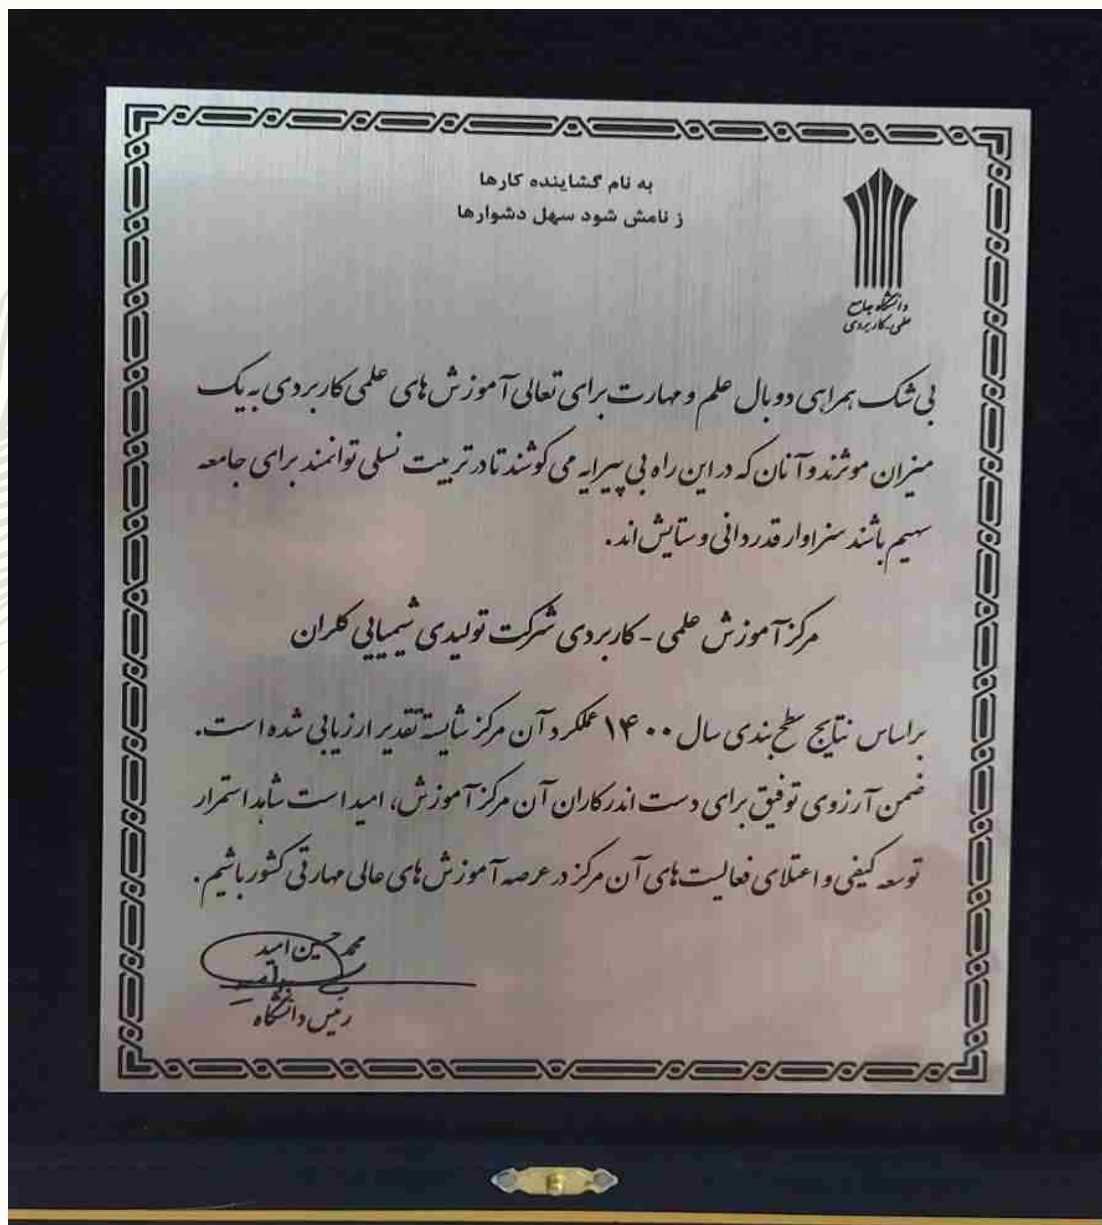 به نام گشاینده کارها
ز نامش شود سهل دشوارها
دانشگاه جامع
علمی-کاربردی
بی شک همراهی دو بال علم و مهارت برای تعالی آموزش های علمی کاربردی به یک
میزان موثرند و آنان که در این راه بی پیرایه می کوشند تا در تربیت نسلی توانمند برای جامعه
سهیم باشند سزاوار قدردانی و ستایش اند.
مرکز آموزش علمی - کاربردی شرکت تولیدی شیمیایی کلران
براساس نتایج سطح بندی سال ۱۴۰۰ عملکرد آن مرکز شایسته تقدیر ارزیابی شده است.
ضمن آرزوی توفیق برای دست اندرکاران آن مرکز آموزش، امید است شاهد استمرار
توسعه کیفی و اعتلای فعالیت های آن مرکز در عرصه آموزش های عالی مهارتی کشور باشیم.
محمد حسین امید
رئیس دانشگاه